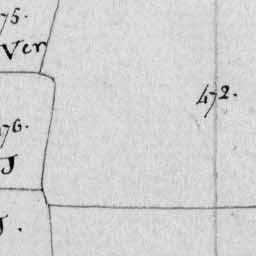 75.
Ver
472.
76.
J
J.